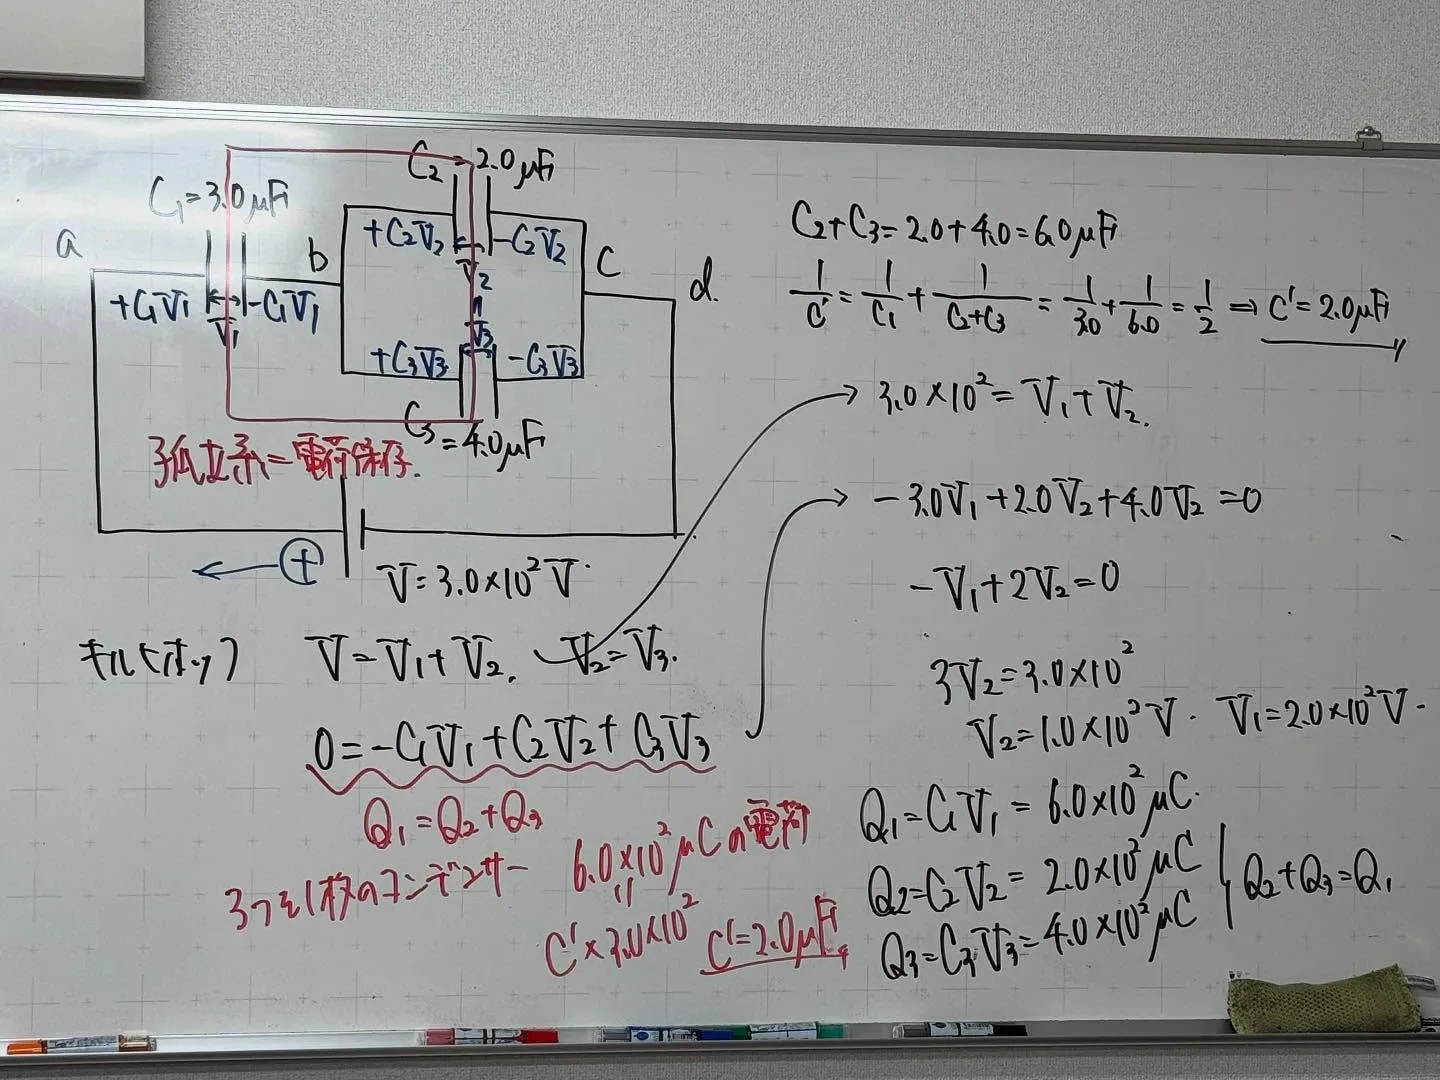 C₂ = 2.0μF
C₁ = 3.0μF
a
b
c
d.
+C₂V₂
-C₂V₂
V₂
+C₁V₁
-C₁V₁
V₁
=
V₃
+C₃V₃
-C₃V₃
C₃ = 4.0μF
孤立系=電荷保存.
+
V=3.0×10²V.
キルヒホッフ V=V₁+V₂. V₂=V₃.
0=-C₁V₁+C₂V₂+C₃V₃
Q₁=Q₂+Q₃
3つを1枚のコンデンサー
6.0×10²μCの電荷
=
C'×3.0×10² C'=2.0μF
C₂+C₃=2.0+4.0=6.0μF
1/C' = 1/C₁ + 1/(C₂+C₃) = 1/3.0 + 1/6.0 = 1/2 ⇒ C'=2.0μF
3.0×10²=V₁+V₂.
-3.0V₁+2.0V₂+4.0V₂=0
-V₁+2V₂=0
3V₂=3.0×10²
V₂=1.0×10²V. V₁=2.0×10²V.
Q₁=C₁V₁=6.0×10²μC.
Q₂=C₂V₂=2.0×10²μC
Q₃=C₃V₃=4.0×10²μC
Q₂+Q₃=Q₁